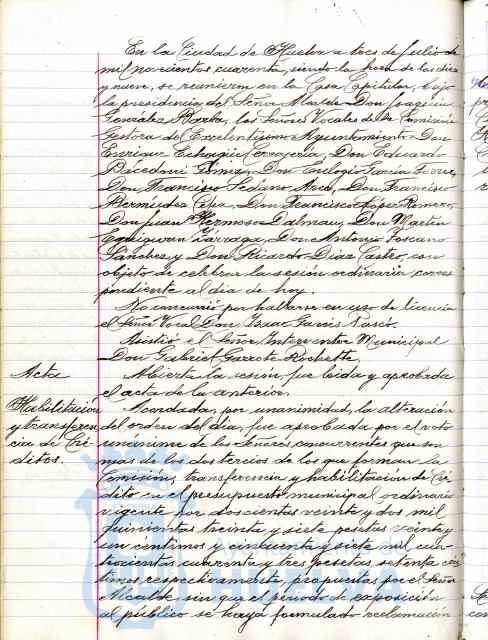 En la Ciudad de Huelva a tres de Julio de
mil novecientos cuarenta, siendo la hora de las diez
y nueve, se reunieron en la Casa Capitular, bajo
la presidencia del Señor Alcalde Don Joaquín
González Barba, los Señores Vocales de la Comisión
Gestora del Excelentísimo Ayuntamiento Don
Enrique Echagüe Cerrajería, Don Eduardo
Gómez, Don Eulogio García
Don Francisco Sedano Arca, Don Francisco
Bermúdez Don Francisco López Romero,
Don Juan Hermoso Dalmau, Don Martín
Eguiguren Lárraga, Don Antonio Toscano
Sánchez y Don Ricardo Díaz Castro, con
objeto de celebrar la sesión ordinaria corres
pondiente al día de hoy.
No concurrió por hallarse en uso de licencia
el Señor Vocal Don Isaac
Asistió el Señor Interventor Municipal
Don Gabriel Garrote Rochette.
Acta
Abierta la sesión, fue leida y aprobada
el acta de la anterior.
Habilitación
y transferen
cia de Cré
ditos.
Acordada, por unanimidad, la alteración
del orden del día, fue aprobada por el voto
unánime de los Señores concurrentes que son
mas de los dos tercios de los que forman la
Comisión, transferencia y habilitación de Cré
dito en el presupuesto municipal ordinario
vigente por doscientos veinte y dos mil
quinientas treinta y siete pesetas veinte y
un céntimos y cincuenta y siete mil cua-
trocientas cuarenta y tres pesetas setenta cén
timos respectivamente, propuestas por el Señor
Alcalde sin que el periodo de exposición
al público se haya formulado reclamación
Ayuntamiento de
HUELVA